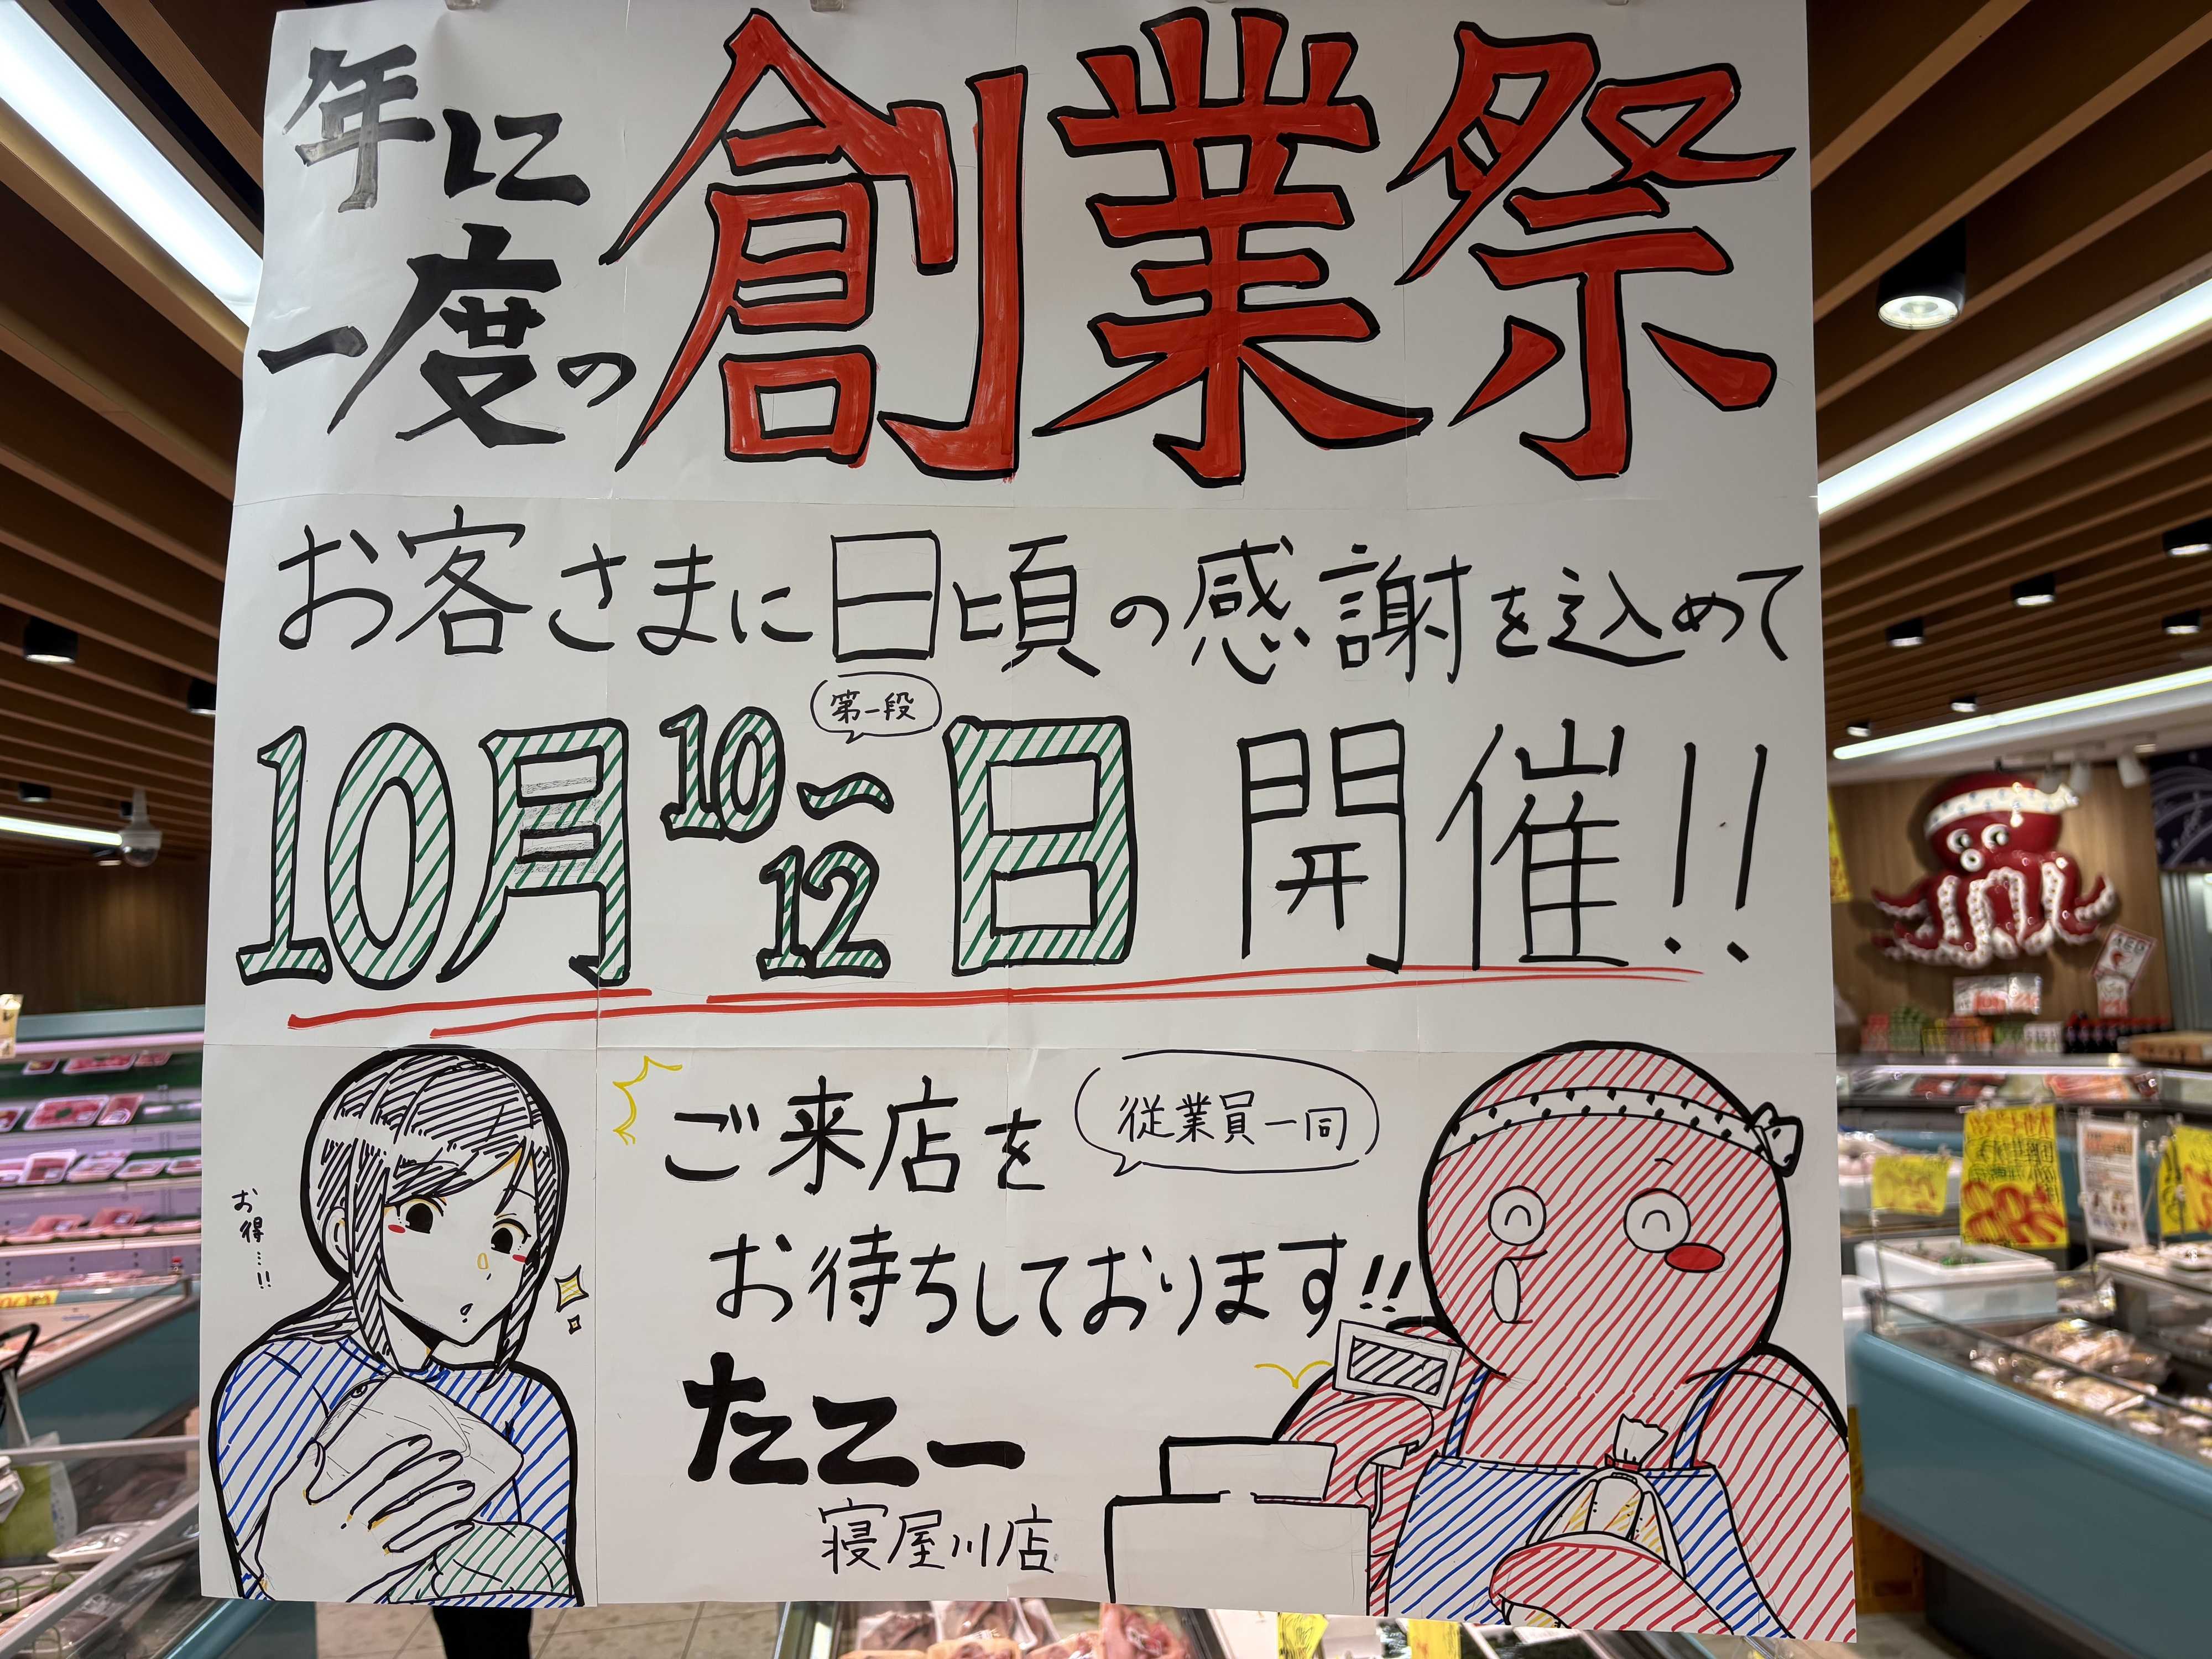 年に
一度の
創業祭
お客さまに日頃の感謝を込めて
第一段
10月10〜12日 開催!!
ご来店を
従業員一同
お待ちしております!!
お得…!!
たこー
寝屋川店